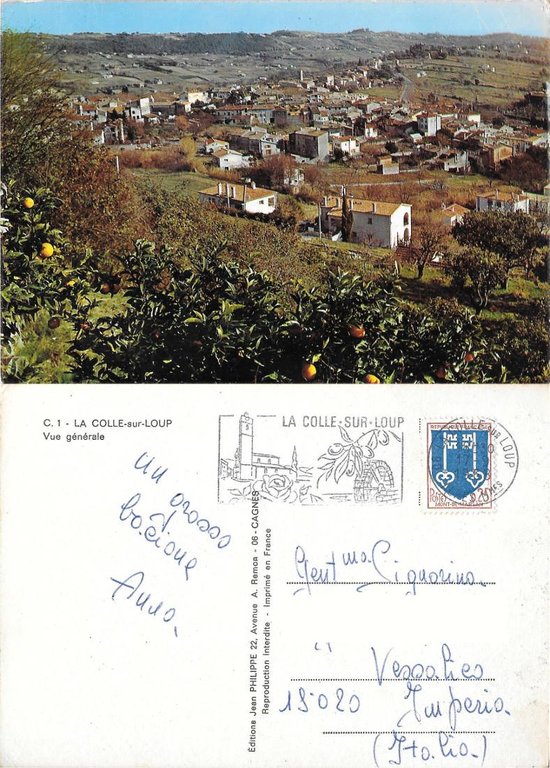 C. 1 - LA COLLE-sur-LOUP
Vue générale
LA COLLE-SUR-LOUP
REPUBLIQUE FRANÇAISE
POSTES 0,20
MONT-DE-MARSAN
un grosso
bacione
Anna.
Editions Jean PHILIPPE 22, Avenue A. Remon - 06 - CAGNES
Reproduction Interdite - Imprimé en France
Gent.ma Signorina
Vessalico
18020 Imperia
(Italia)